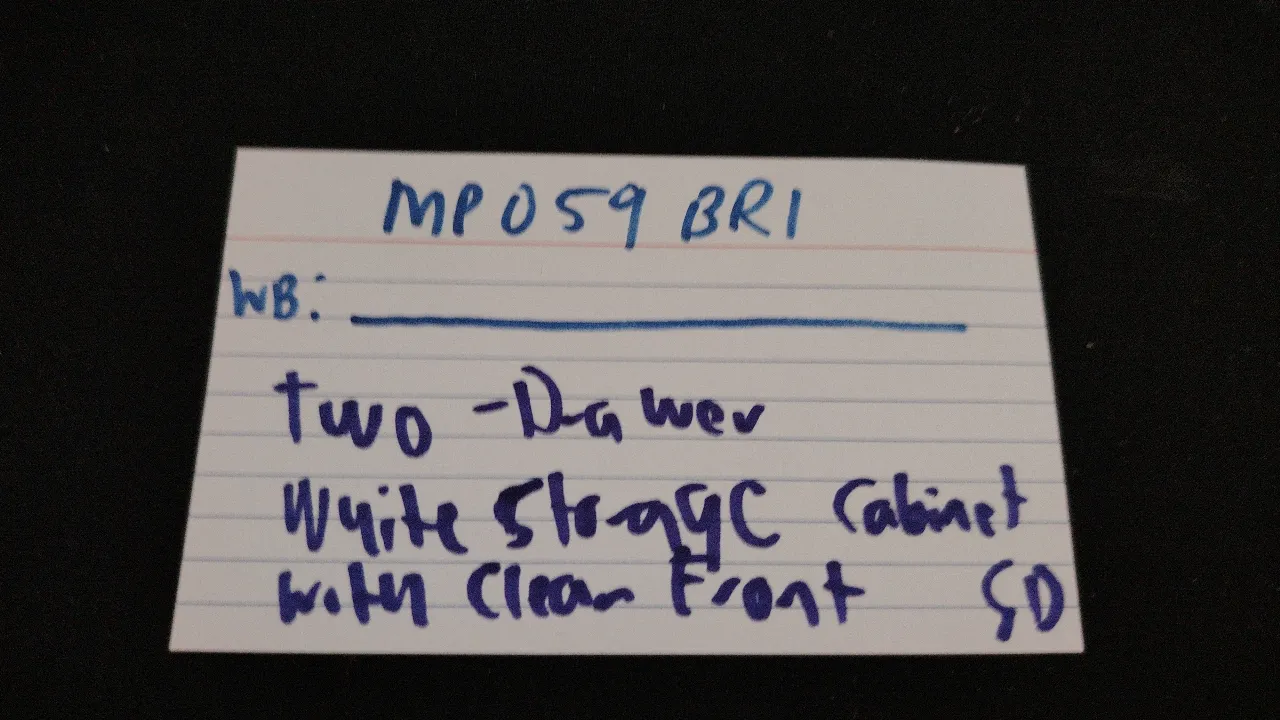 MP059 BR1
WB:
Two-Drawer
White Storage Cabinet
with Clear Front SD